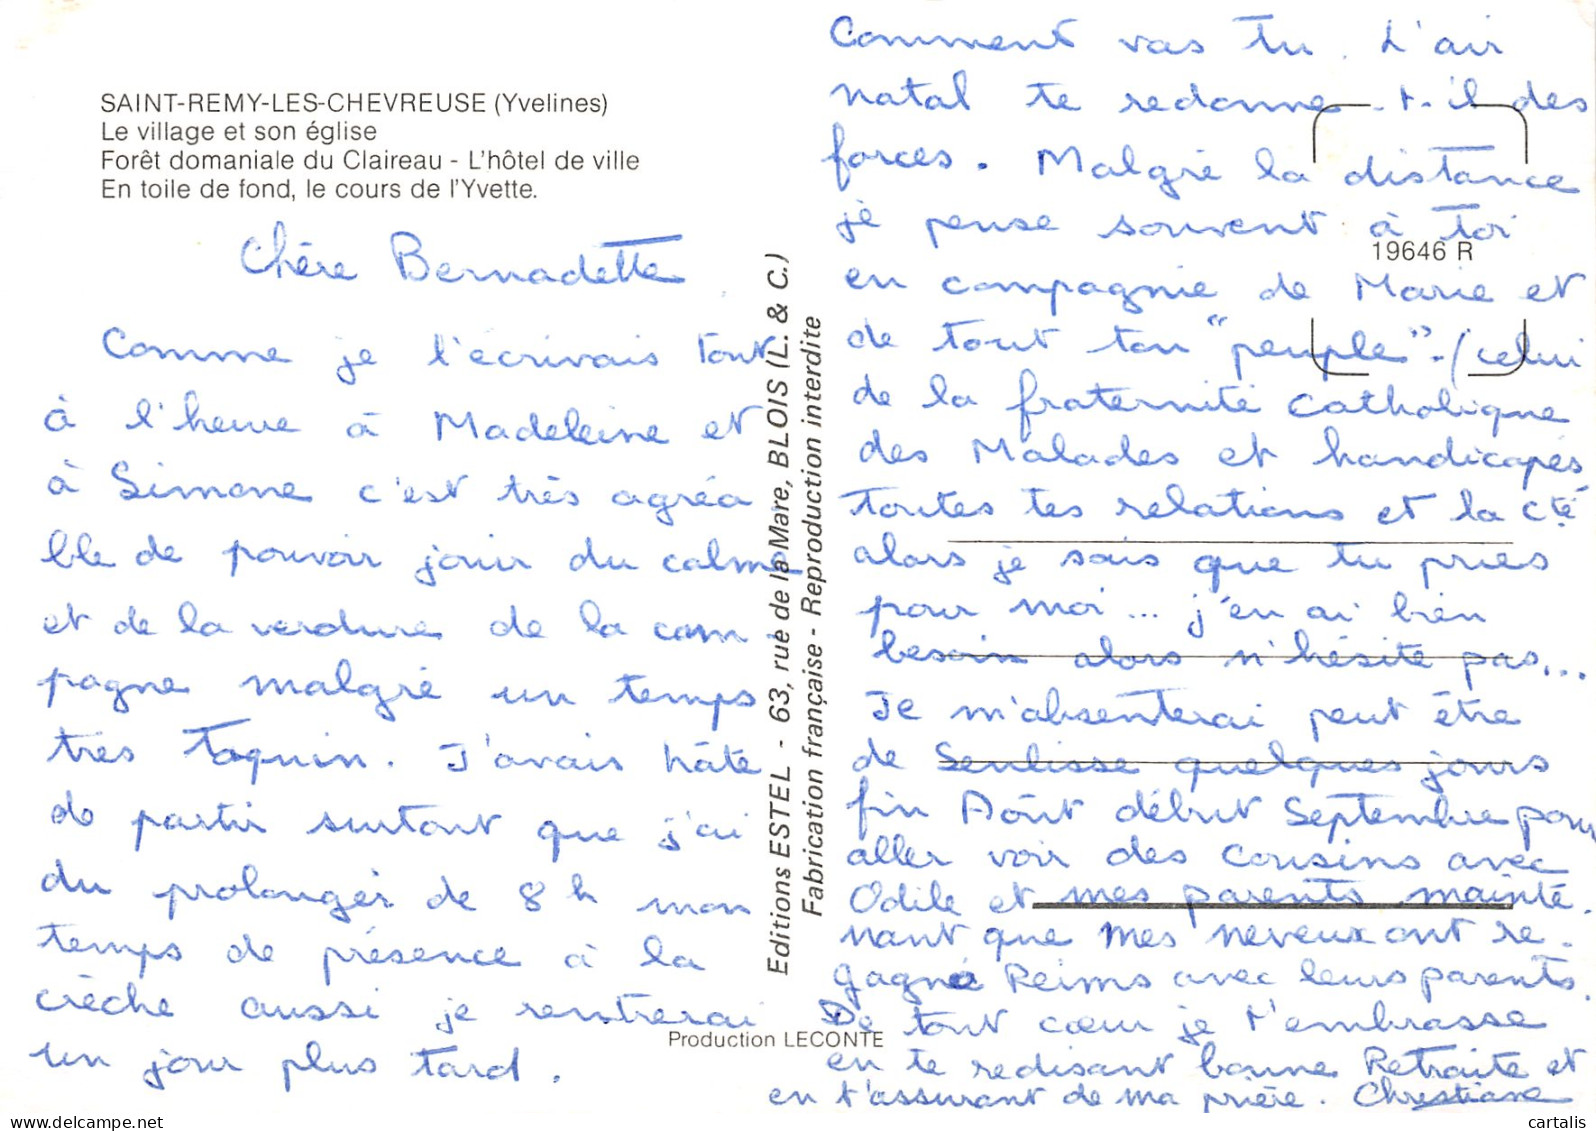 SAINT-REMY-LES-CHEVREUSE (Yvelines)
Le village et son église
Forêt domaniale du Claireau - L'hôtel de ville
En toile de fond, le cours de l'Yvette.
Chère Bernadette
Comme je l'écrivais tout
à l'heure à Madeleine et
à Simone c'est très agréa
ble de pouvoir jouir du calme
et de la verdure de la cam
pagne malgré un temps
très taquin. J'avais hâte
de partir surtout que j'ai
du prolonger de 8 h mon
temps de présence à la
crèche aussi je rentrerai
un jour plus tard.
Editions ESTEL - 63, rue de la Mare, BLOIS (L. & C.)
Fabrication française - Reproduction interdite
Production LECONTE
19646 R
Comment vas tu. L'air
natal te redonne-t-il des
forces. Malgré la distance
je pense souvent à toi
en compagnie de Marie et
de tout ton "peuple"-(celui
de la fraternité Catholique
des Malades et handicapés
toutes tes relations et la cté
alors je sais que tu pries
pour moi... j'en ai bien
besoin alors n'hésite pas...
Je m'absenterai peut être
de Senlisse quelques jours
fin Août début Septembre pour
aller voir des cousins avec
Odile et mes parents mainte.
nant que mes neveux ont re-
gagné Reims avec leurs parents.
De tout cœur je t'embrasse
en te redisant bonne Retraite et
en t'assurant de ma prière. Christiane
cartalis